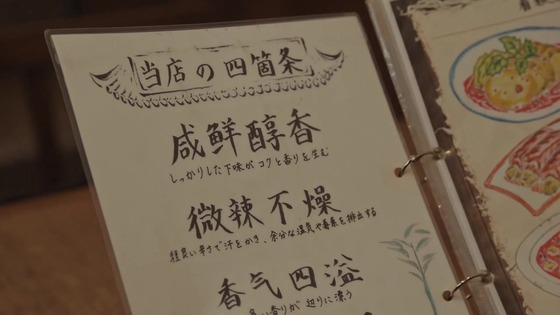 当店の四箇条
咸鮮醇香
しっかりした下味が コクと香りを生む
微辣不燥
程良い辛さで汗をかき、余分な湿気や毒素を排出する
香气四溢
良い香りが 辺りに漂う